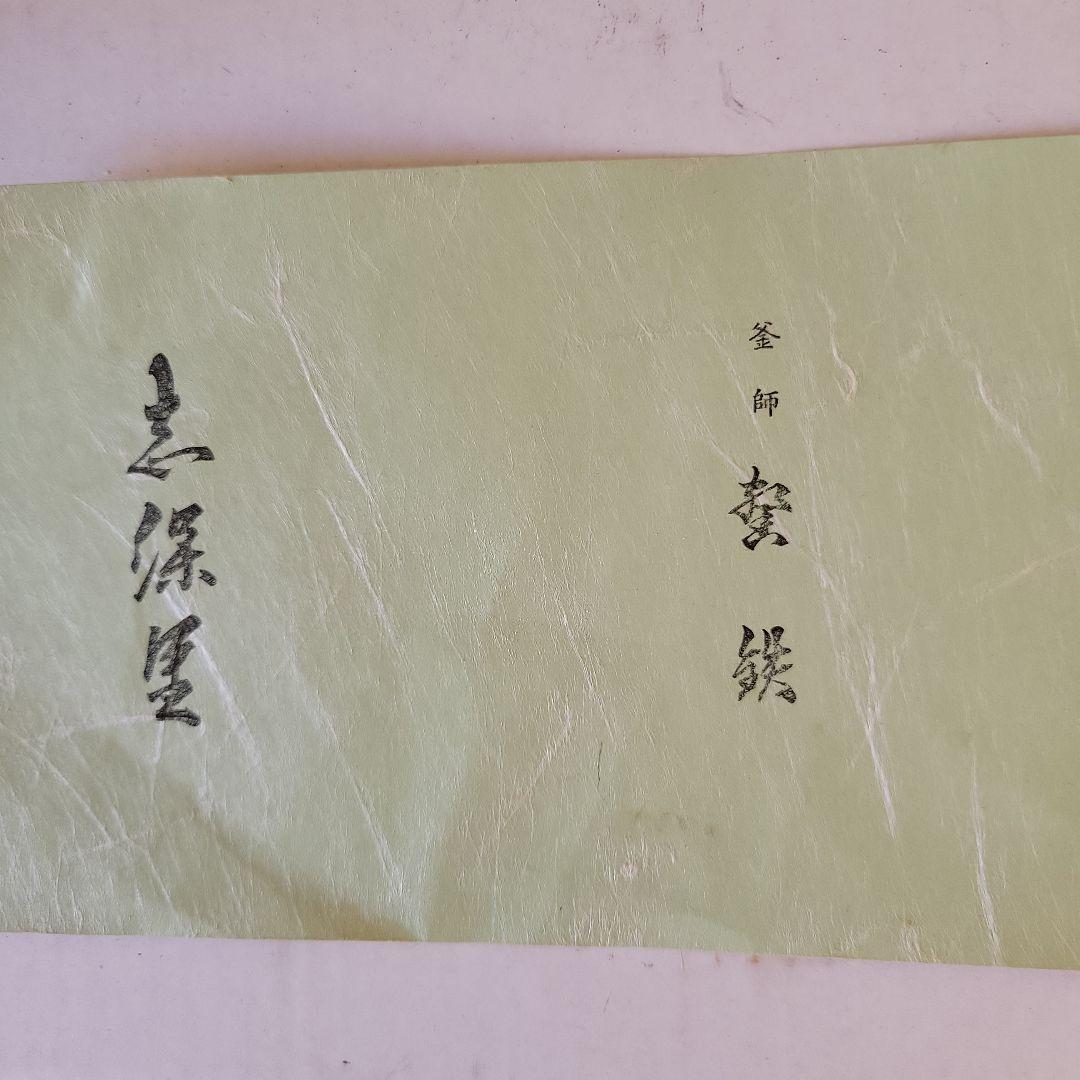 釜師 鉄
志保里